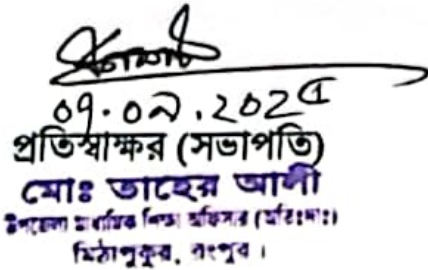 ০৭.০৯.২০২৫
প্রতিস্বাক্ষর (সভাপতি)
মোঃ তাহের আলী
উপজেলা মাধ্যমিক শিক্ষা অফিসার (অতিঃদাঃ)
মিঠাপুকুর, রংপুর।